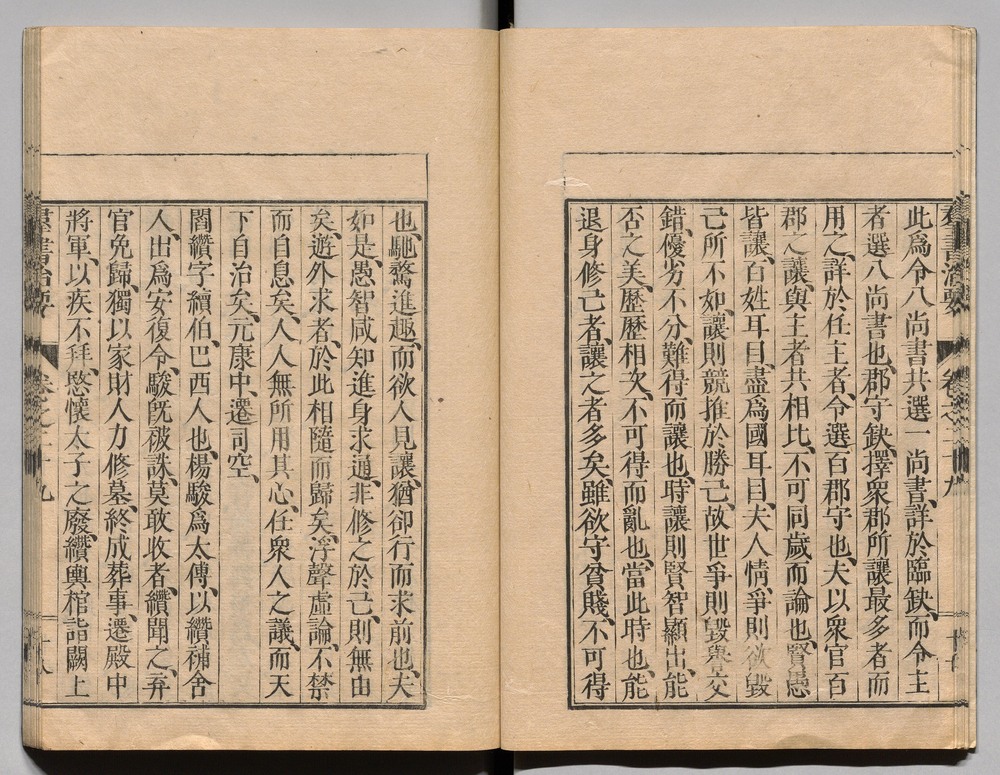 此爲令八尚書共選一尚書、詳於臨缺、而令主
者選八尚書也、郡守缺、擇衆郡所讓最多者而
用之、詳於任主者、令選百郡守也、夫以衆官百
郡之讓、與主者共相比、不可同歲而論也、賢愚
皆讓、百姓耳目、盡爲國耳目、夫人情、爭則欲毀
己所不如、讓則競推於勝己、故世爭則毀譽交
錯、優劣不分、難得而讓也、時讓則賢智顯出、能
否之美、歷歷相次、不可得而亂也、當此時也、能
退身修己者、讓之者多矣、雖欲守貧賤、不可得
也、馳騖進趣、而欲人見讓、猶卻行而求前也、夫
如是、愚智咸知進身求通、非修之於己、則無由
矣、遊外求者、於此相隨而歸矣、浮聲虛論、不禁
而自息矣、人人無所用其心、任衆人之議、而天
下自治矣、元康中、遷司空、
閻纘字續伯、巴西人也、楊駿爲太傅、以纘補舍
人、出爲安復令、駿旣被誅、莫敢收者、纘聞之、弃
官免歸、獨以家財人力修墓、終成葬事、遷殿中
將軍、以疾不拜、愍懷太子之廢、纘輿棺詣闕上
羣書治要 卷之二十九 十八